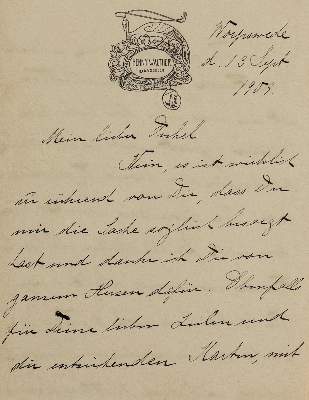 HENNY WALTHER
Worpswede
d. 13 Sept
1909.
Mein lieber
Nein, es ist wirklich
rührend von Dir, dass Du
mir die Sache sogleich besorgt
hast und danke ich Dir von
ganzem Herzen dafür. Ebenfalls
für Deine lieben Zeilen und
die entzückenden Karten, mit